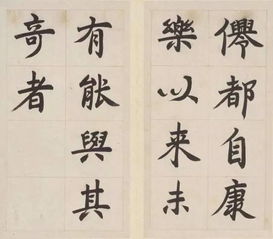 儛都自康
樂以来未
有能與其
奇者